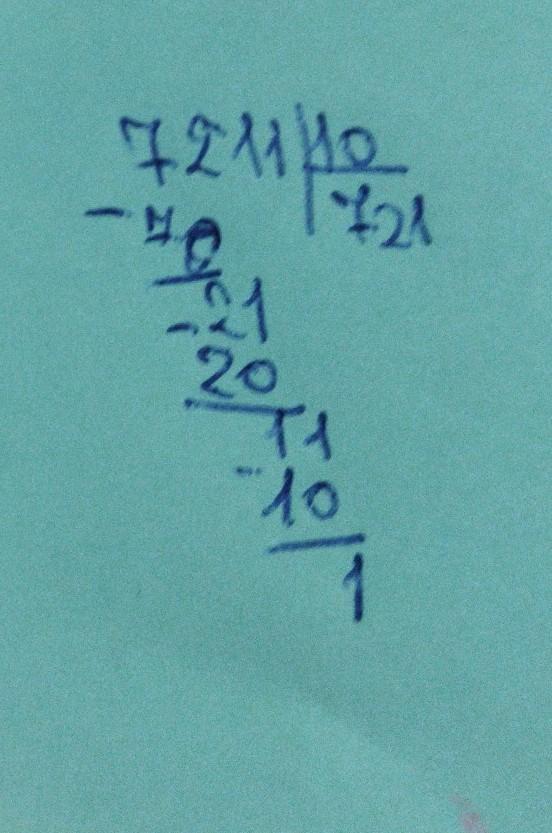 7211 10
- 70 721
21
- 20
11
- 10
1